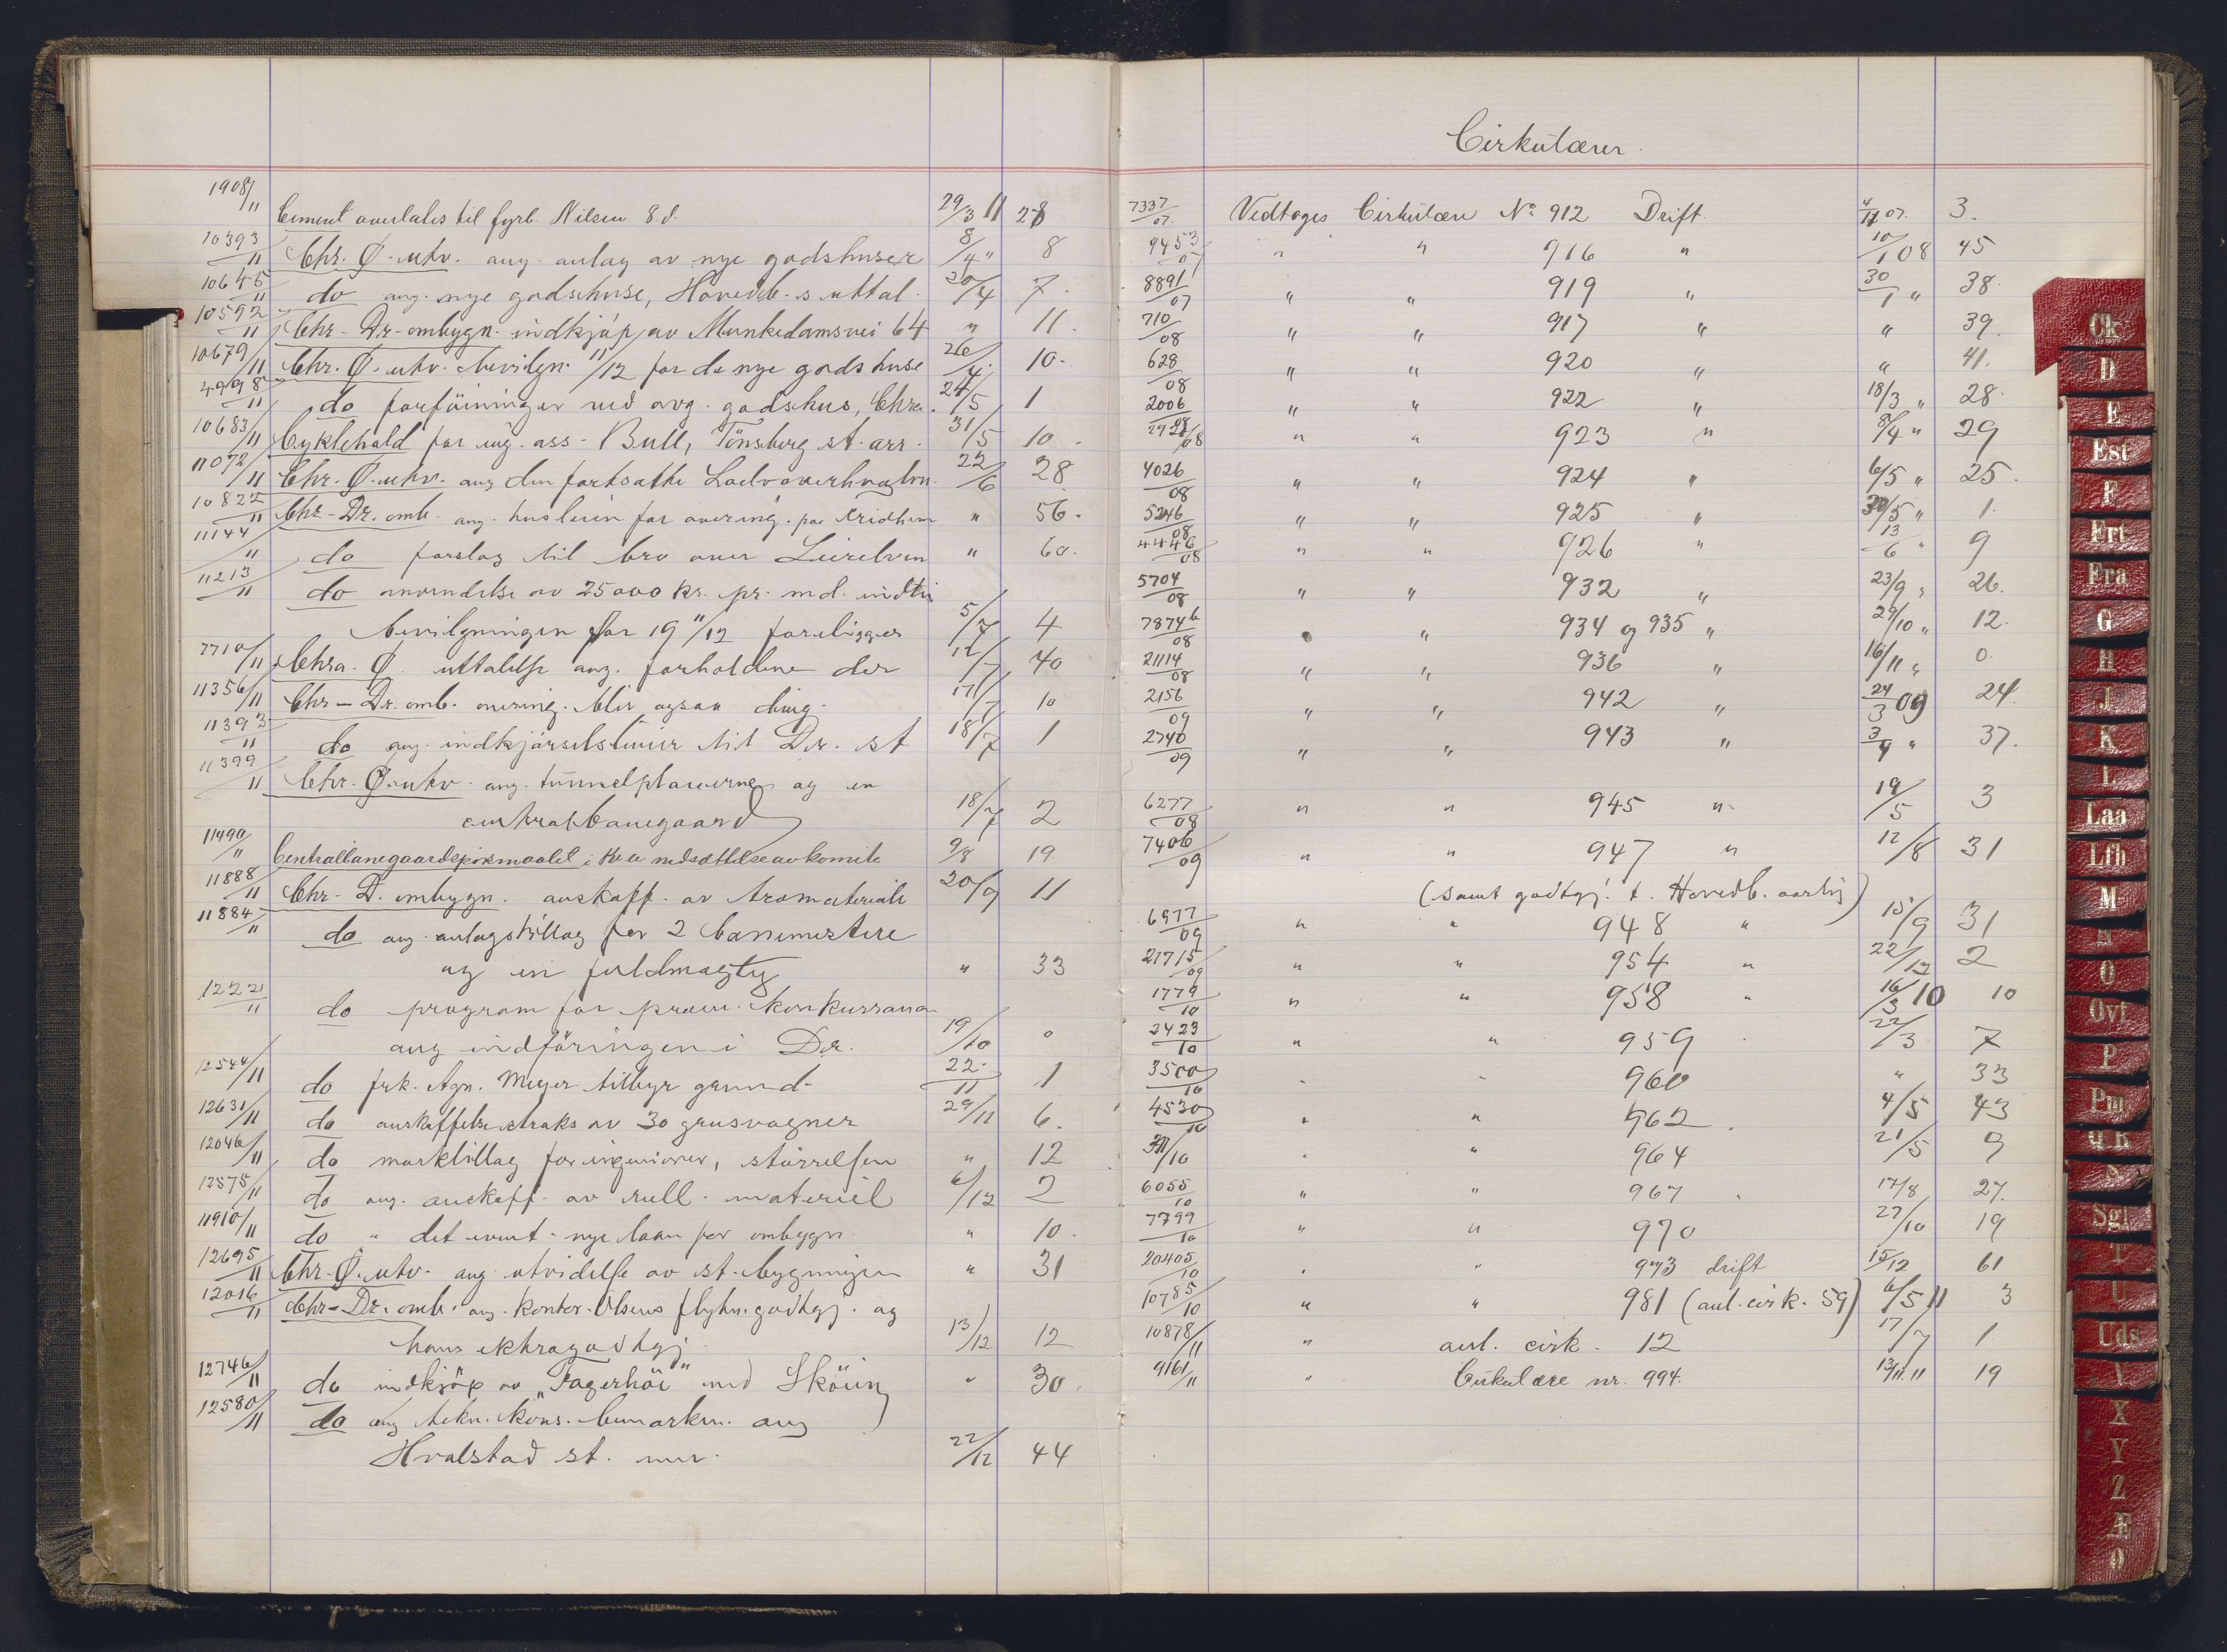 1908/11 Cement overlates til fyrb. Nilsen 8 d. 29/3 11 28
10393/11 Chr. Ø. utv. ang. anlæg av nye godshuser 8/4 " 8
10645/11 do ang. nye godshuse, Hovedb.s uttal. 20/4 7.
10592/11 Chr-Dr-ombygn. indkjöp av Munkedamsvei 64 " 11.
10679/11 Chr. Ø. utv. bevilgn. 11/12 for de nye godshuse 26/4. 10.
4998/11 do forföininger ved avg. godshus, Chra. 24/5 1
10683/11 Cyklehold for ing. ass. Bull, Tönsberg st. arr. 31/5 10.
11072/11 Chr. Ø. utv. ang den fortsatte 22/6 28
10822/11 Chr-Dr. omb. ang. husleien for overing. paa " 56.
11144/11 do forslag til bro over Leirelven " 60.
11213/11 do anvendelse av 25000 kr. pr. md. indtil
bevilgningen for 19 11/12 foreligger 5/7 4
7710/11 Chra. Ø. uttalelse ang. forholdene der 12/7 40
11356/11 Chr-Dr. omb. overing. blir ogsaa 17/7 10
11393/11 do ang. indkjörselslinier til Dr. st 18/7 1
11399/11 Chr. Ø. utv. ang. tunnelplanerne og en
centralbanegaard 18/7 2
11490/11 Centralbanegaardspörsmaalet i Kra nedsættelse av komite 9/8 19
11888/11 Chr-D. ombygn. anskaff. av bromateriale 20/9 11
11884/11 do ang. anlægstillæg for 2 banemestere
og en fuldmægtig " 33
12221/11 do program for præm. konkurranse
ang indföringen i Dr. 19/10 0
12544/11 do frk. Agn. Meyer tilbyr grund. 22/11 1
12631/11 do anskaffelse straks av 30 grusvogner 29/11 6.
12046/11 do marktillæg for ingeniörer, störrelsen " 12
12575/11 do ang. anskaff. av rull. materiel 6/12 2
11910/11 do " det event. nye laan for ombygn. " 10.
12695/11 Chr. Ø. utv. ang utvidelse av st. bygningen " 31
12016/11 Chr-Dr. omb. ang. kontor. Olsens flytn. godtgj. og
hans ekstragodtgj. 13/12 12
12746/11 do indkjöp av "Fagerhöi" ved Sköien " 30.
12580/11 do ang tekn. kons. bemærkn. ang
Hvalstad st. m.v. 22/12 44
Cirkulærer.
7337/07. Vedtages Cirkulære No. 912 Drift. 4/11 07. 3.
9453/07 " " 916 " 10/1 08 45
8891/07 " " 919 " 30/1 " 38.
710/08 " " 917 " " 39.
628/08 " " 920 " " 41.
2006/08 " " 922 " 18/3 " 28.
2928/08 " " 923 " 8/4 " 29
4026/08 " " 924 " 6/5 " 25.
5246/08 " " 925 " 30/5 " 1.
4446/08 " " 926 " 13/6 " 9
5704/08 " " 932 " 23/9 " 26.
7874 b/08 " " 934 og 935 " 29/10 " 12.
21114/08 " " 936 " 16/11 " 0.
2156/09 " " 942 " 24/3 09 24.
2740/09 " " 943 " 3/4 " 37.
6277/08 " " 945 " 19/5 3
7406/09 " " 947 " 12/8 31
(samt godtgj. t. Hovedb. aarlig)
6977/09 " " 948 " 15/9 31
21715/09 " " 954 " 22/12 2
1779/10 " " 958 " 16/3 10 10
2423/10 " " 959 . 22/3 7
3500/10 " " 960 " 33
4530/10 " " 962 . 4/5 43
/10 " " 964 21/5 9
6055/10 " " 967 . 17/8 27.
7799/10 " " 970 27/10 19
20405/10 " " 973 drift 15/12 61
10785/10 " " 981 (anl. cirk. 59) 6/5 11 3
10878/11 " anl. cirk. 12 17/7 1
9161/11 " Cirkulære nr. 994. 13/11. 11 19
Ck
D
E
Est
F
Frt
Fra
G
H
J
K
L
Laa
Lfh
M
N
O
Ovf
P
Pm
Q R
S
Sgl
T
U
Uds
V
X
Y
Z
Æ
Ø